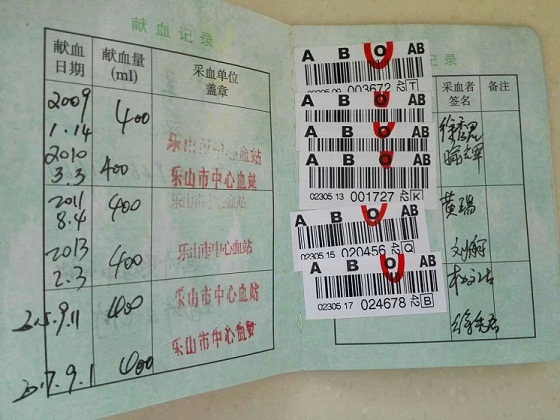 献血记录
献血日期
献血量(ml)
采血单位盖章
2009
1.14
400
乐山市中心血站
2010
3.3
400
乐山市中心血站
2011
8.4
400
乐山市中心血站
2013
2.3
400
乐山市中心血站
2015.9.11
400
乐山市中心血站
2017.9.1
400
乐山市中心血站
记录
采血者签名
备注
A B O AB
02305 09 003672 42 T
A B O AB
A B O AB
A B O AB
02305 13 001727 42 K
A B O AB
02305 15 020456 42 Q
A B O AB
02305 17 024678 42 B
黄瑞